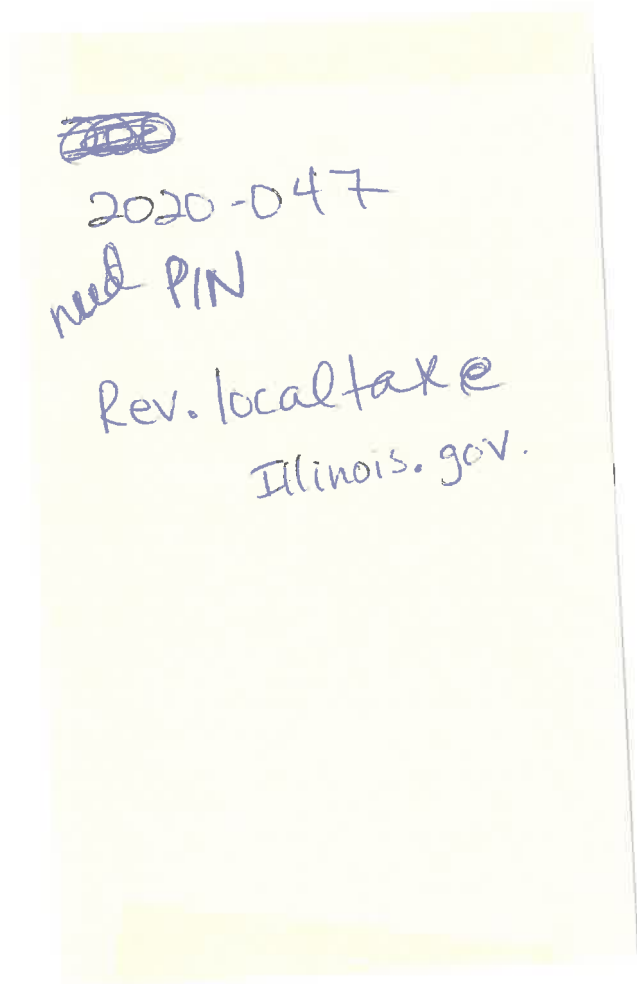 2020-047
need PIN
Rev.localtax@
Illinois.gov.